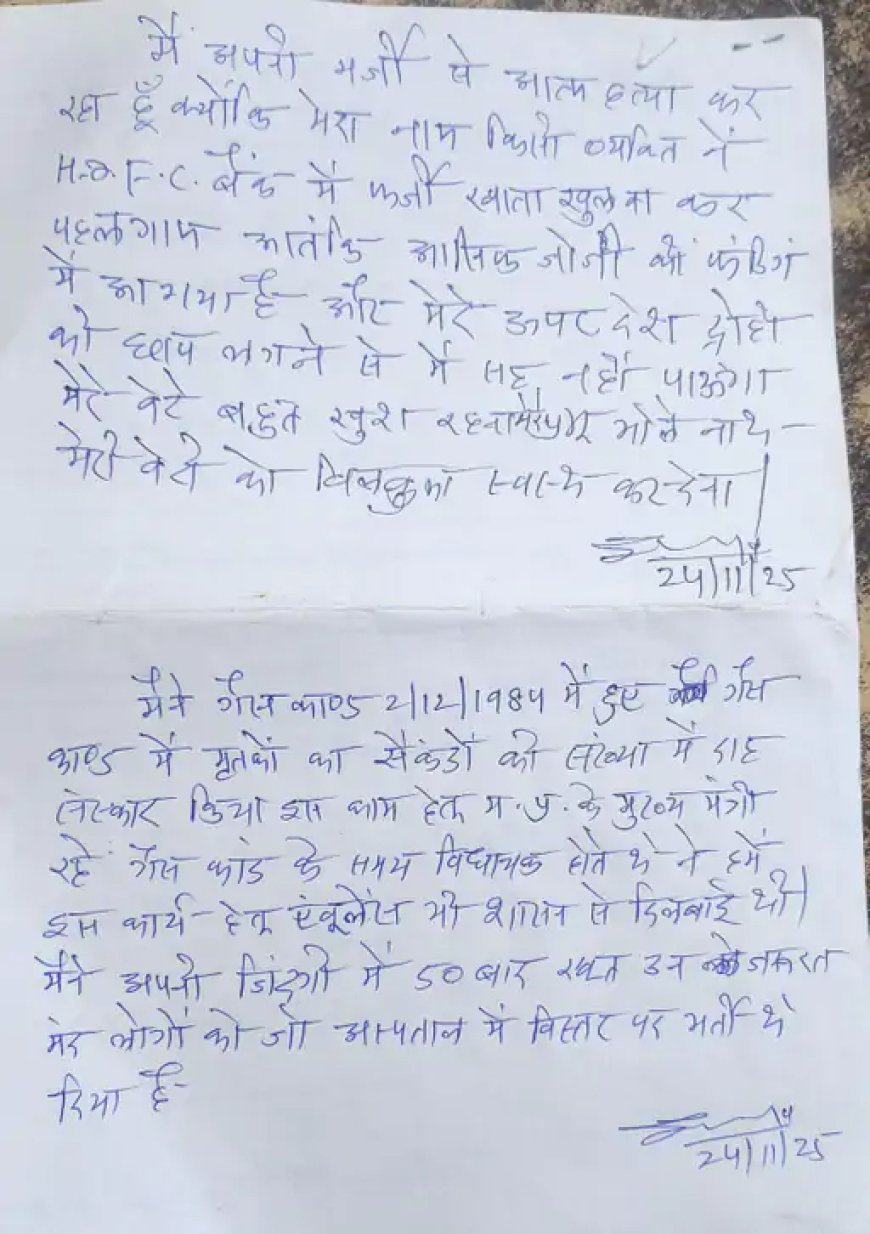 मैं अपनी मर्जी से आत्म हत्या कर
रहा हूँ क्योंकि मेरा नाम किसी व्यक्ति नें
H.D.F.C. बैंक में फर्जी खाता खुलवा कर
पहलगाम आतंकि आसिफ जोजी की फंडिगं
में आ गया है और मेरे ऊपर देश द्रोही
की छाप लगने से में सह नहीं पाऊंगा
मेरे बेटे बहुत खुश रहना मेरे प्रभू भोले नाथ -
मेरी बेटी को बिलकुल स्वास्थ कर देना।
24/11/25
मैने गैस काण्ड 2/12/1984 में हुए गैस
काण्ड में मृतकों का सैकंडों की संख्या में दाह
संस्कार किया इस काम हेतू म.प्र. के मुख्य मंत्री
रहे गैस कांड के समय विधायक होते थे ने हमें
इस कार्य हेतू एंबूलेंस भी शासन से दिलबाई थी।
मैंने अपनी जिंदगी में 50 बार रक्त उन जरूरत
मंद लोगों को जो अस्पताल में विस्तर पर भर्ती थे
दिया है-
24/11/25